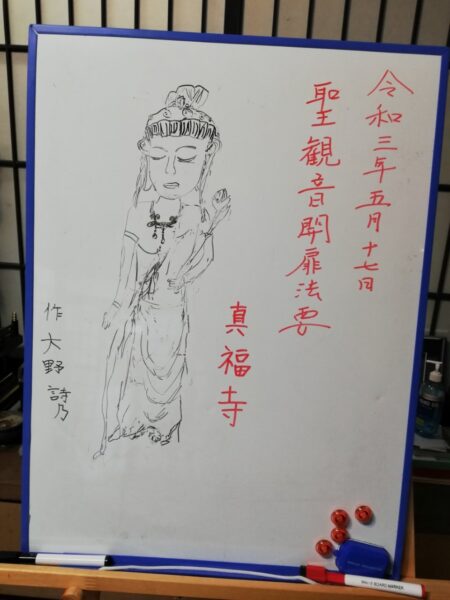 令和三年五月十七日
聖観音開扉法要
真福寺
作 大野 詩乃